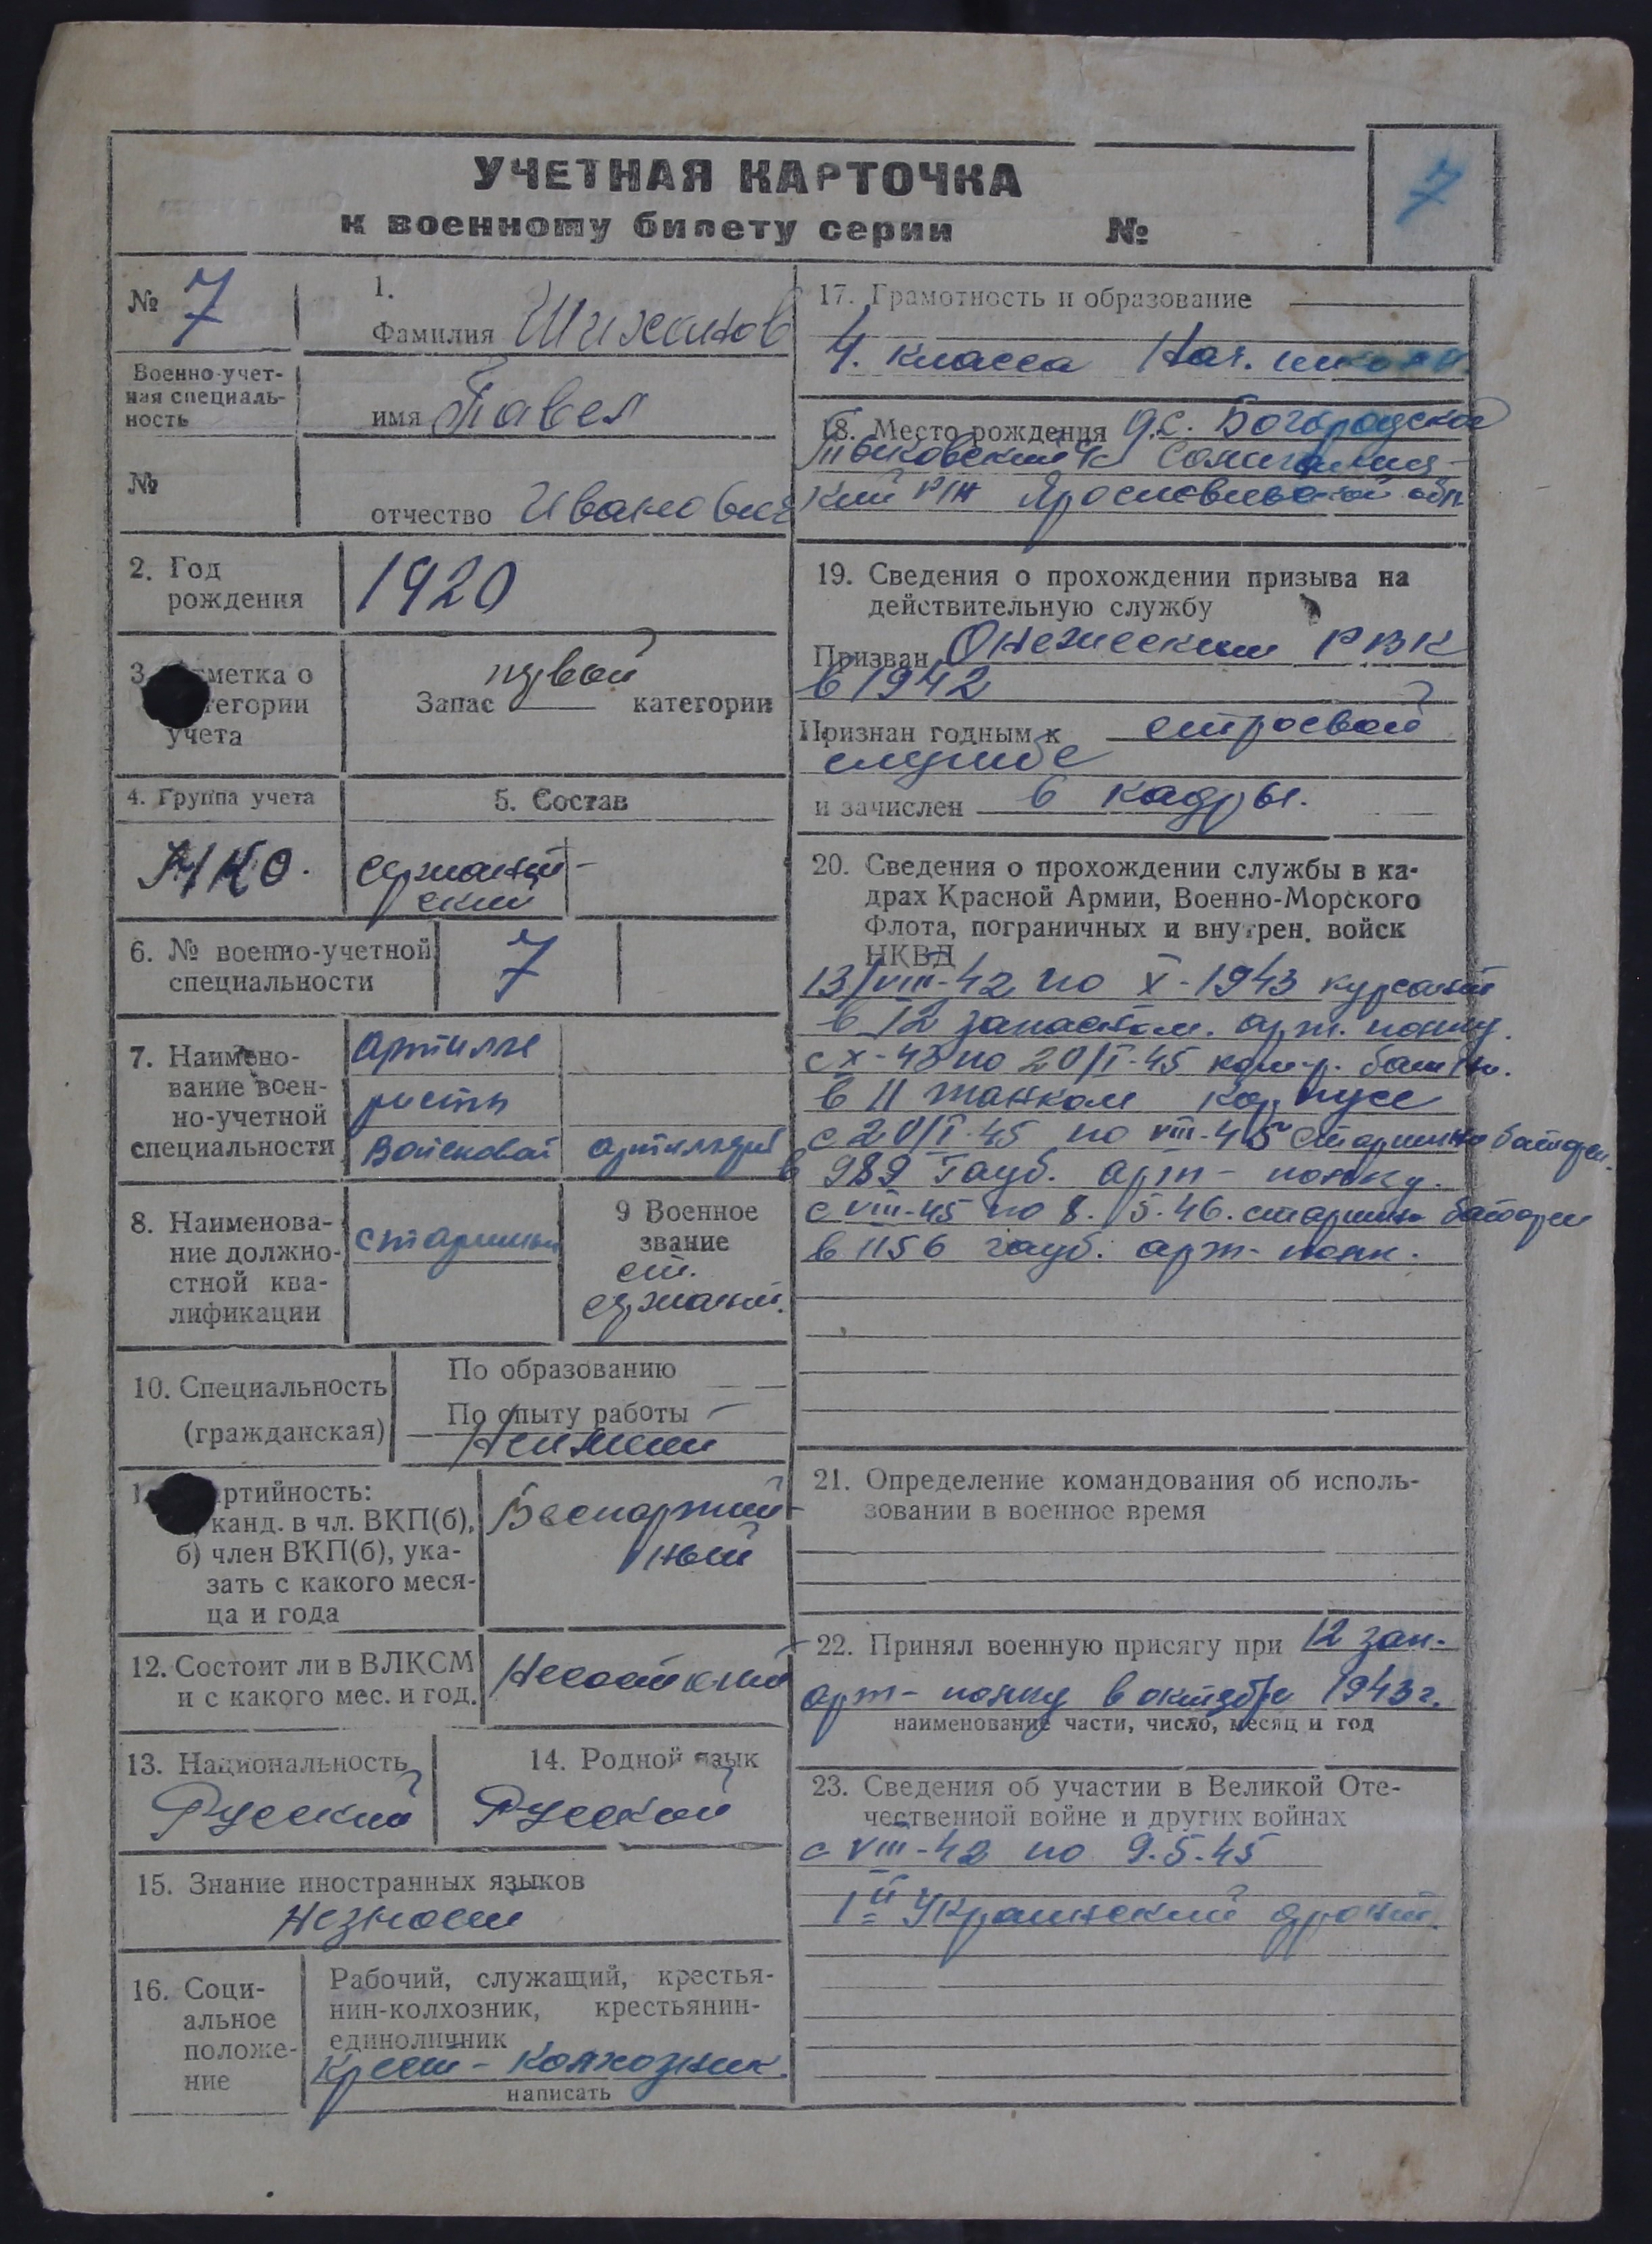 УЧЕТНАЯ КАРТОЧКА
к военному билету серии №
7
№ 7
1.
Фамилия Шиханов
Военно-учет-
ная специаль-
ность
имя Павел
№
отчество Иванович
2. Год
рождения
1920
3. метка о
тегории
учета
Запас первой категории
4. Группа учета
5. Состав
НКО.
сержант-
ский
6. № военно-учетной
специальности
7
7. Наимено-
вание воен-
но-учетной
специальности
артилле
ристы
войсковой артиллерии
8. Наименова-
ние должно-
стной ква-
лификации
старшины
9 Военное
звание
ст.
сержант.
10. Специальность
(гражданская)
По образованию
По опыту работы
Неимеет
1 ртийность:
канд. в чл. ВКП(б),
б) член ВКП(б), ука-
зать с какого меся-
ца и года
Беспартий-
ный
12. Состоит ли в ВЛКСМ
и с какого мес. и год.
Несостоит
13. Национальность
Русский
14. Родной язык
Русский
15. Знание иностранных языков
Незнает
16. Соци-
альное
положе-
ние
Рабочий, служащий, крестья-
нин-колхозник, крестьянин-
единоличник
Крест-колхозник.
написать
17. Грамотность и образование
4. класса Нач. школы.
18. Место рождения д.с. Богородское
с/с Солигалич-
кий р/н Ярославской обл.
19. Сведения о прохождении призыва на
действительную службу
Призван Онежским РВК
в 1942
Признан годным к строевой
службе
и зачислен в кадры.
20. Сведения о прохождении службы в ка-
драх Красной Армии, Военно-Морского
Флота, пограничных и внутрен. войск
НКВД
13/VIII-42 по X-1943 курсант
в 12 запасном. арт. полку.
с X-43 по 20/I-45
в 11 танком корпусе
с 20/I-45 по VIII-45 старшина батареи.
в 989 Гауб. арт-полку.
с VIII-45 по 8. 5.46. старшин батареи
в 1156 гауб. арт-полк.
21. Определение командования об исполь-
зовании в военное время
22. Принял военную присягу при 12 зап.
арт-полку в октябре 1943 г.
наименование части, число, месяц и год
23. Сведения об участии в Великой Оте-
чественной войне и других войнах
с VIII-42 по 9.5.45
1й Украинский фронт.